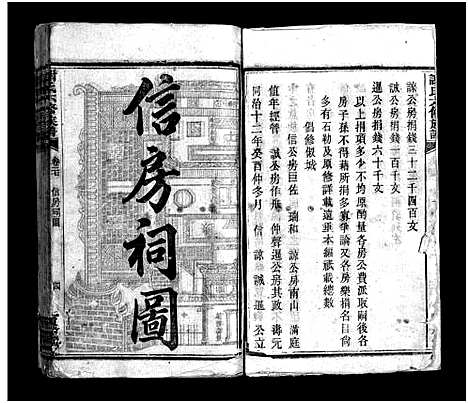 諒公房捐錢三十二千四百文
誠公房捐錢一百千文
暹公房捐錢六十千文
以上捐項多少不均原酌量各房公費派取嗣後各
房子孫不得藉所捐多寡爭論又各房樂捐名目前
有石勒及原修詳載遠垂本編祇載總數
倡修俶城
信公房日佐 瑞和 諒公房南山 滿庭
值年經管 誠公房作舟 仲聲暹公房其政 壽元
同治十二年癸酉仲冬月 信 諒 誠 暹 公立
信房祠圖
信房祠圖
四